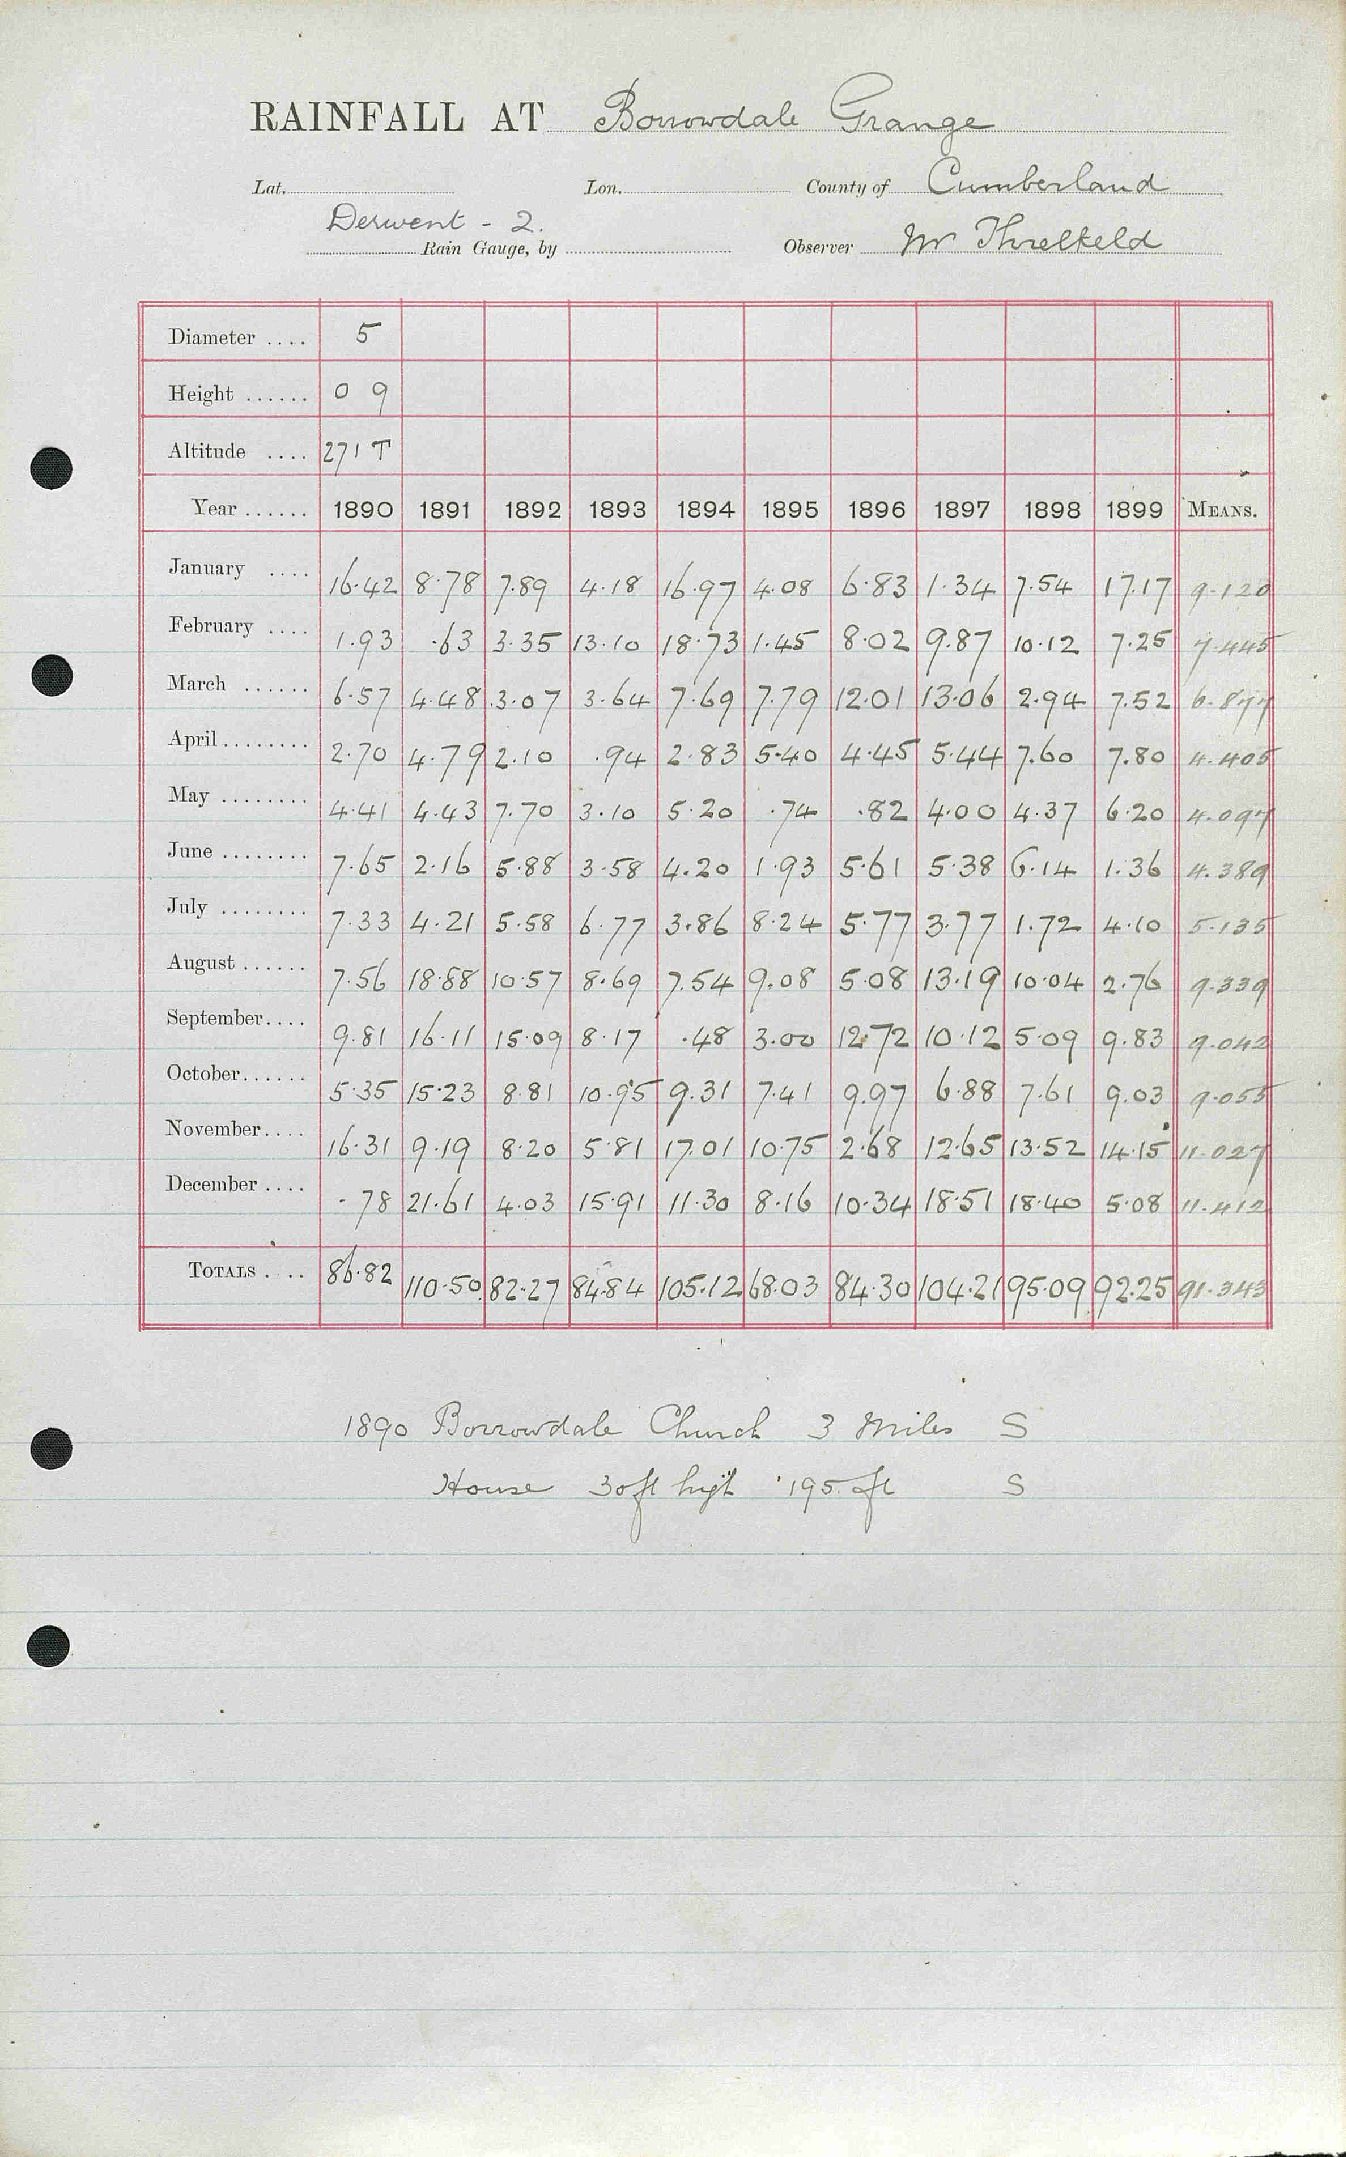 RAINFALL AT Borrowdale Grange
Lat. Lon. County of Cumberland
Derwent - 2.
Rain Gauge, by Observer Mr Threlkeld
Diameter .... 5
Height ...... 0 9
Altitude .... 271 T
Year ...... 1890 1891 1892 1893 1894 1895 1896 1897 1898 1899 MEANS.
January .... 16.42 8.78 7.89 4.18 16.97 4.08 6.83 1.34 7.54 17.17 9.120
February .... 1.93 .63 3.35 13.10 18.73 1.45 8.02 9.87 10.12 7.25 7.445
March ...... 6.57 4.48 3.07 3.64 7.69 7.79 12.01 13.06 2.94 7.52 6.877
April ........ 2.70 4.79 2.10 .94 2.83 5.40 4.45 5.44 7.60 7.80 4.405
May ........ 4.41 4.43 7.70 3.10 5.20 .74 .82 4.00 4.37 6.20 4.097
June ........ 7.65 2.16 5.88 3.58 4.20 1.93 5.61 5.38 6.14 1.36 4.389
July ........ 7.33 4.21 5.58 6.77 3.86 8.24 5.77 3.77 1.72 4.10 5.135
August ...... 7.56 18.88 10.57 8.69 7.54 9.08 5.08 13.19 10.04 2.76 9.339
September.... 9.81 16.11 15.09 8.17 .48 3.00 12.72 10.12 5.09 9.83 9.042
October...... 5.35 15.23 8.81 10.95 9.31 7.41 9.97 6.88 7.61 9.03 9.055
November.... 16.31 9.19 8.20 5.81 17.01 10.75 2.68 12.65 13.52 14.15 11.027
December .... .78 21.61 4.03 15.91 11.30 8.16 10.34 18.51 18.40 5.08 11.412
TOTALS .... 86.82 110.50 82.27 84.84 105.12 68.03 84.30 104.21 95.09 92.25 91.343
1890 Borrowdale Church 3 Miles S
House 30ft high 195 ft S